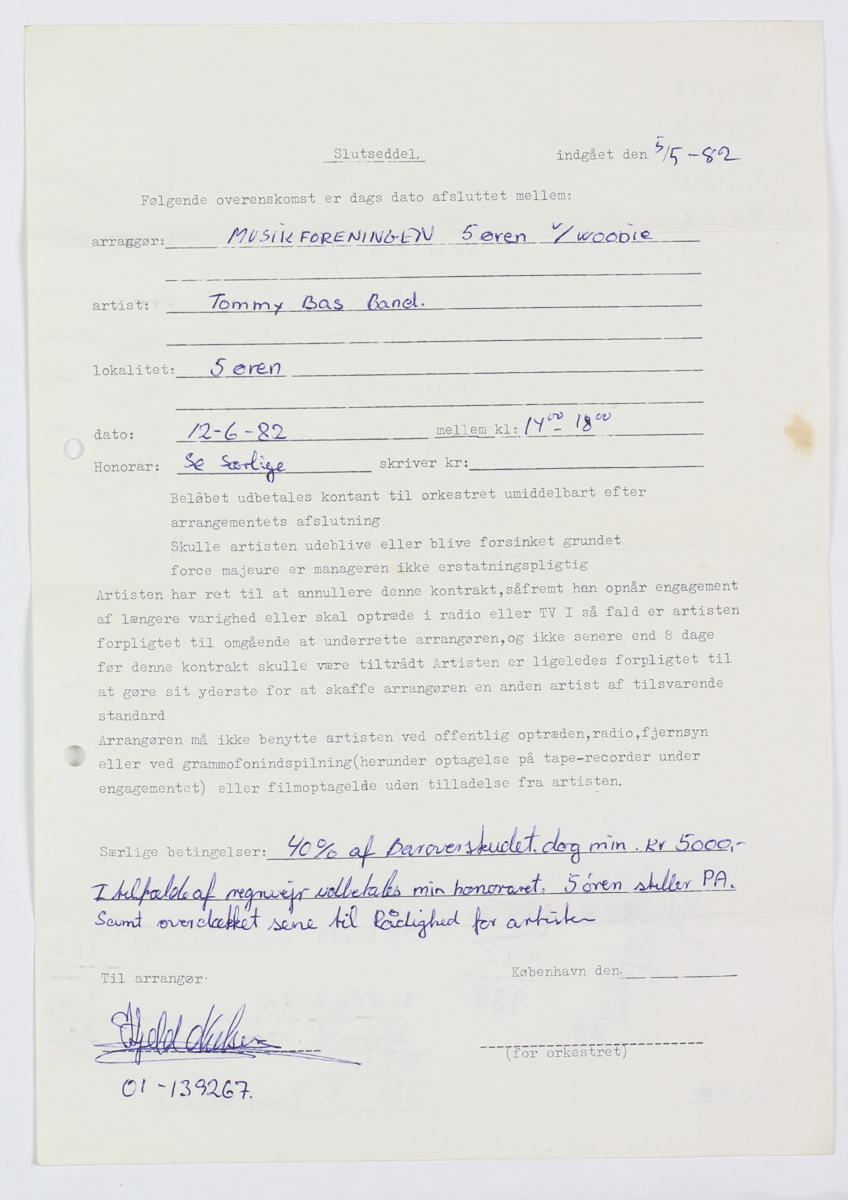 Slutseddel. indgået den 5/5-82
Følgende overenskomst er dags dato afsluttet mellem:
arrangør: MUSIKFORENINGEN 5øren v/WOODIE
artist: Tommy Bas Band.
lokalitet: 5øren
dato: 12-6-82 mellem kl: 14⁰⁰ - 18⁰⁰
Honorar: Se Særlige skriver kr:
Beløbet udbetales kontant til orkestret umiddelbart efter
arrangementets afslutning
Skulle artisten udeblive eller blive forsinket grundet
force majeure er manageren ikke erstatningspligtig
Artisten har ret til at annullere denne kontrakt,såfremt han opnår engagement
af længere varighed eller skal optræde i radio eller TV I så fald er artisten
forpligtet til omgående at underrette arrangøren,og ikke senere end 8 dage
før denne kontrakt skulle være tiltrådt Artisten er ligeledes forpligtet til
at gøre sit yderste for at skaffe arrangøren en anden artist af tilsvarende
standard
Arrangøren må ikke benytte artisten ved offentlig optræden,radio,fjernsyn
eller ved grammofonindspilning(herunder optagelse på tape-recorder under
engagementet) eller filmoptagelde uden tilladelse fra artisten.
Særlige betingelser: 40% af Baroverskudet. dog min. kr 5000,-
I tilfælde af regnvejr udbetales min honoraret. 5øren stiller PA.
Samt overdækket sene til Rådighed for artisten
Til arrangør. København den.
(for orkestret)
01-139267.